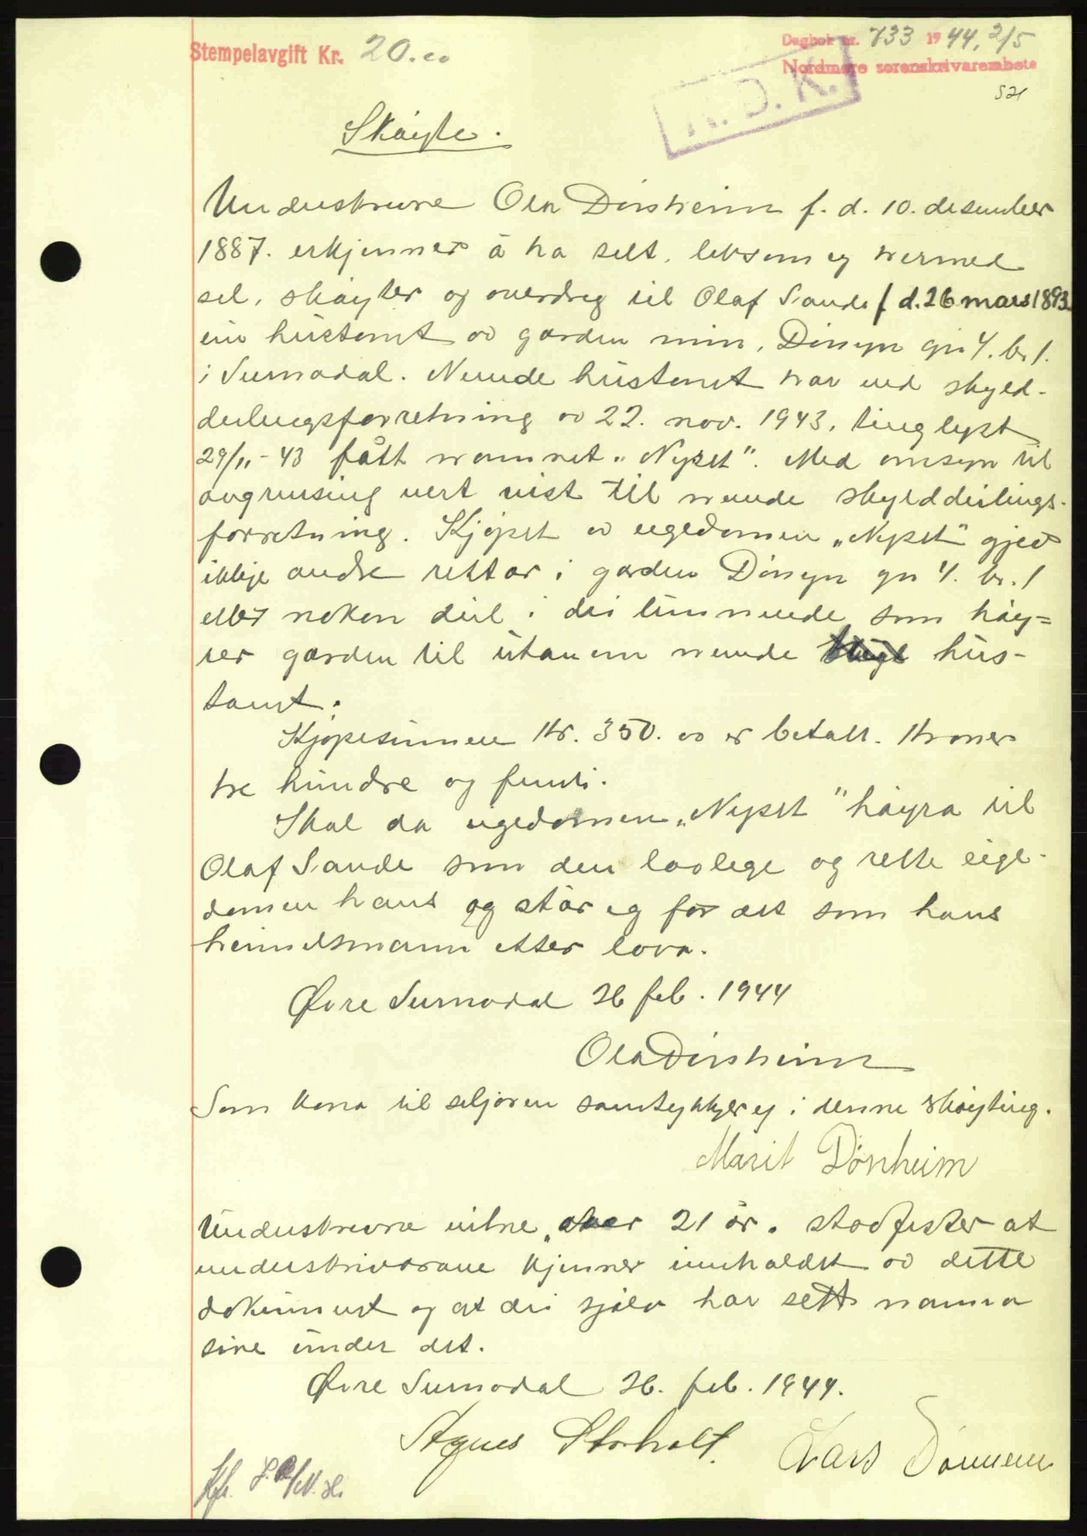 Stempelavgift Kr. 20.00
Dagbok nr. 733 1944, 2/5
Nordmøre sorenskrivarembete
521
R. D. K.
Skøyte.
Underskrivne Ola Dønheim f. d. 10. desember
1887. erkjenner å ha selt, liksom eg hermed
sel, skøyter og overdreg til Olaf Sande f. d. 26 mars 1893
ein hustomt av garden min, Dønyn gn 4. br 1.
i Surnadal. Nemnde hustomt har ved skyld-
delingsforretning av 22. nov. 1943, tinglyst
29/11-43 fått namnet "Nyset". Med omsyn til
avgrensing vert vist til nemnde skylddelings-
forretning. Kjøpet av eigedomen "Nyset" gjev
ikkje andre rettar i garden Dønyn gn 4. br. 1
eller nokon del i dei lunnende som høy-
rer garden til utanom nemnde hus-
tomt.
Kjøpesummen kr. 350.00 er betalt. Kroner
tre hundre og femti.
Skal da eigedomen "Nyset" høyra til
Olaf Sande som den lovlege og rette eige-
domen hans og står eg for det som hans
heimelsmann etter lova.
Øvre Surnadal 26 feb. 1944
Ola Dønheim
Som kona til seljaren samtykkjer eg i denne skøyting.
Marit Dønheim
Underskrivne vitne, over 21 år. stadfester at
underskrivarane kjenner innhaldet av dette
dokument og at dei sjølv har sett namna
sine under det.
Øvre Surnadal 26. feb. 1944.
Agnes Storholt. Lars Dønnem